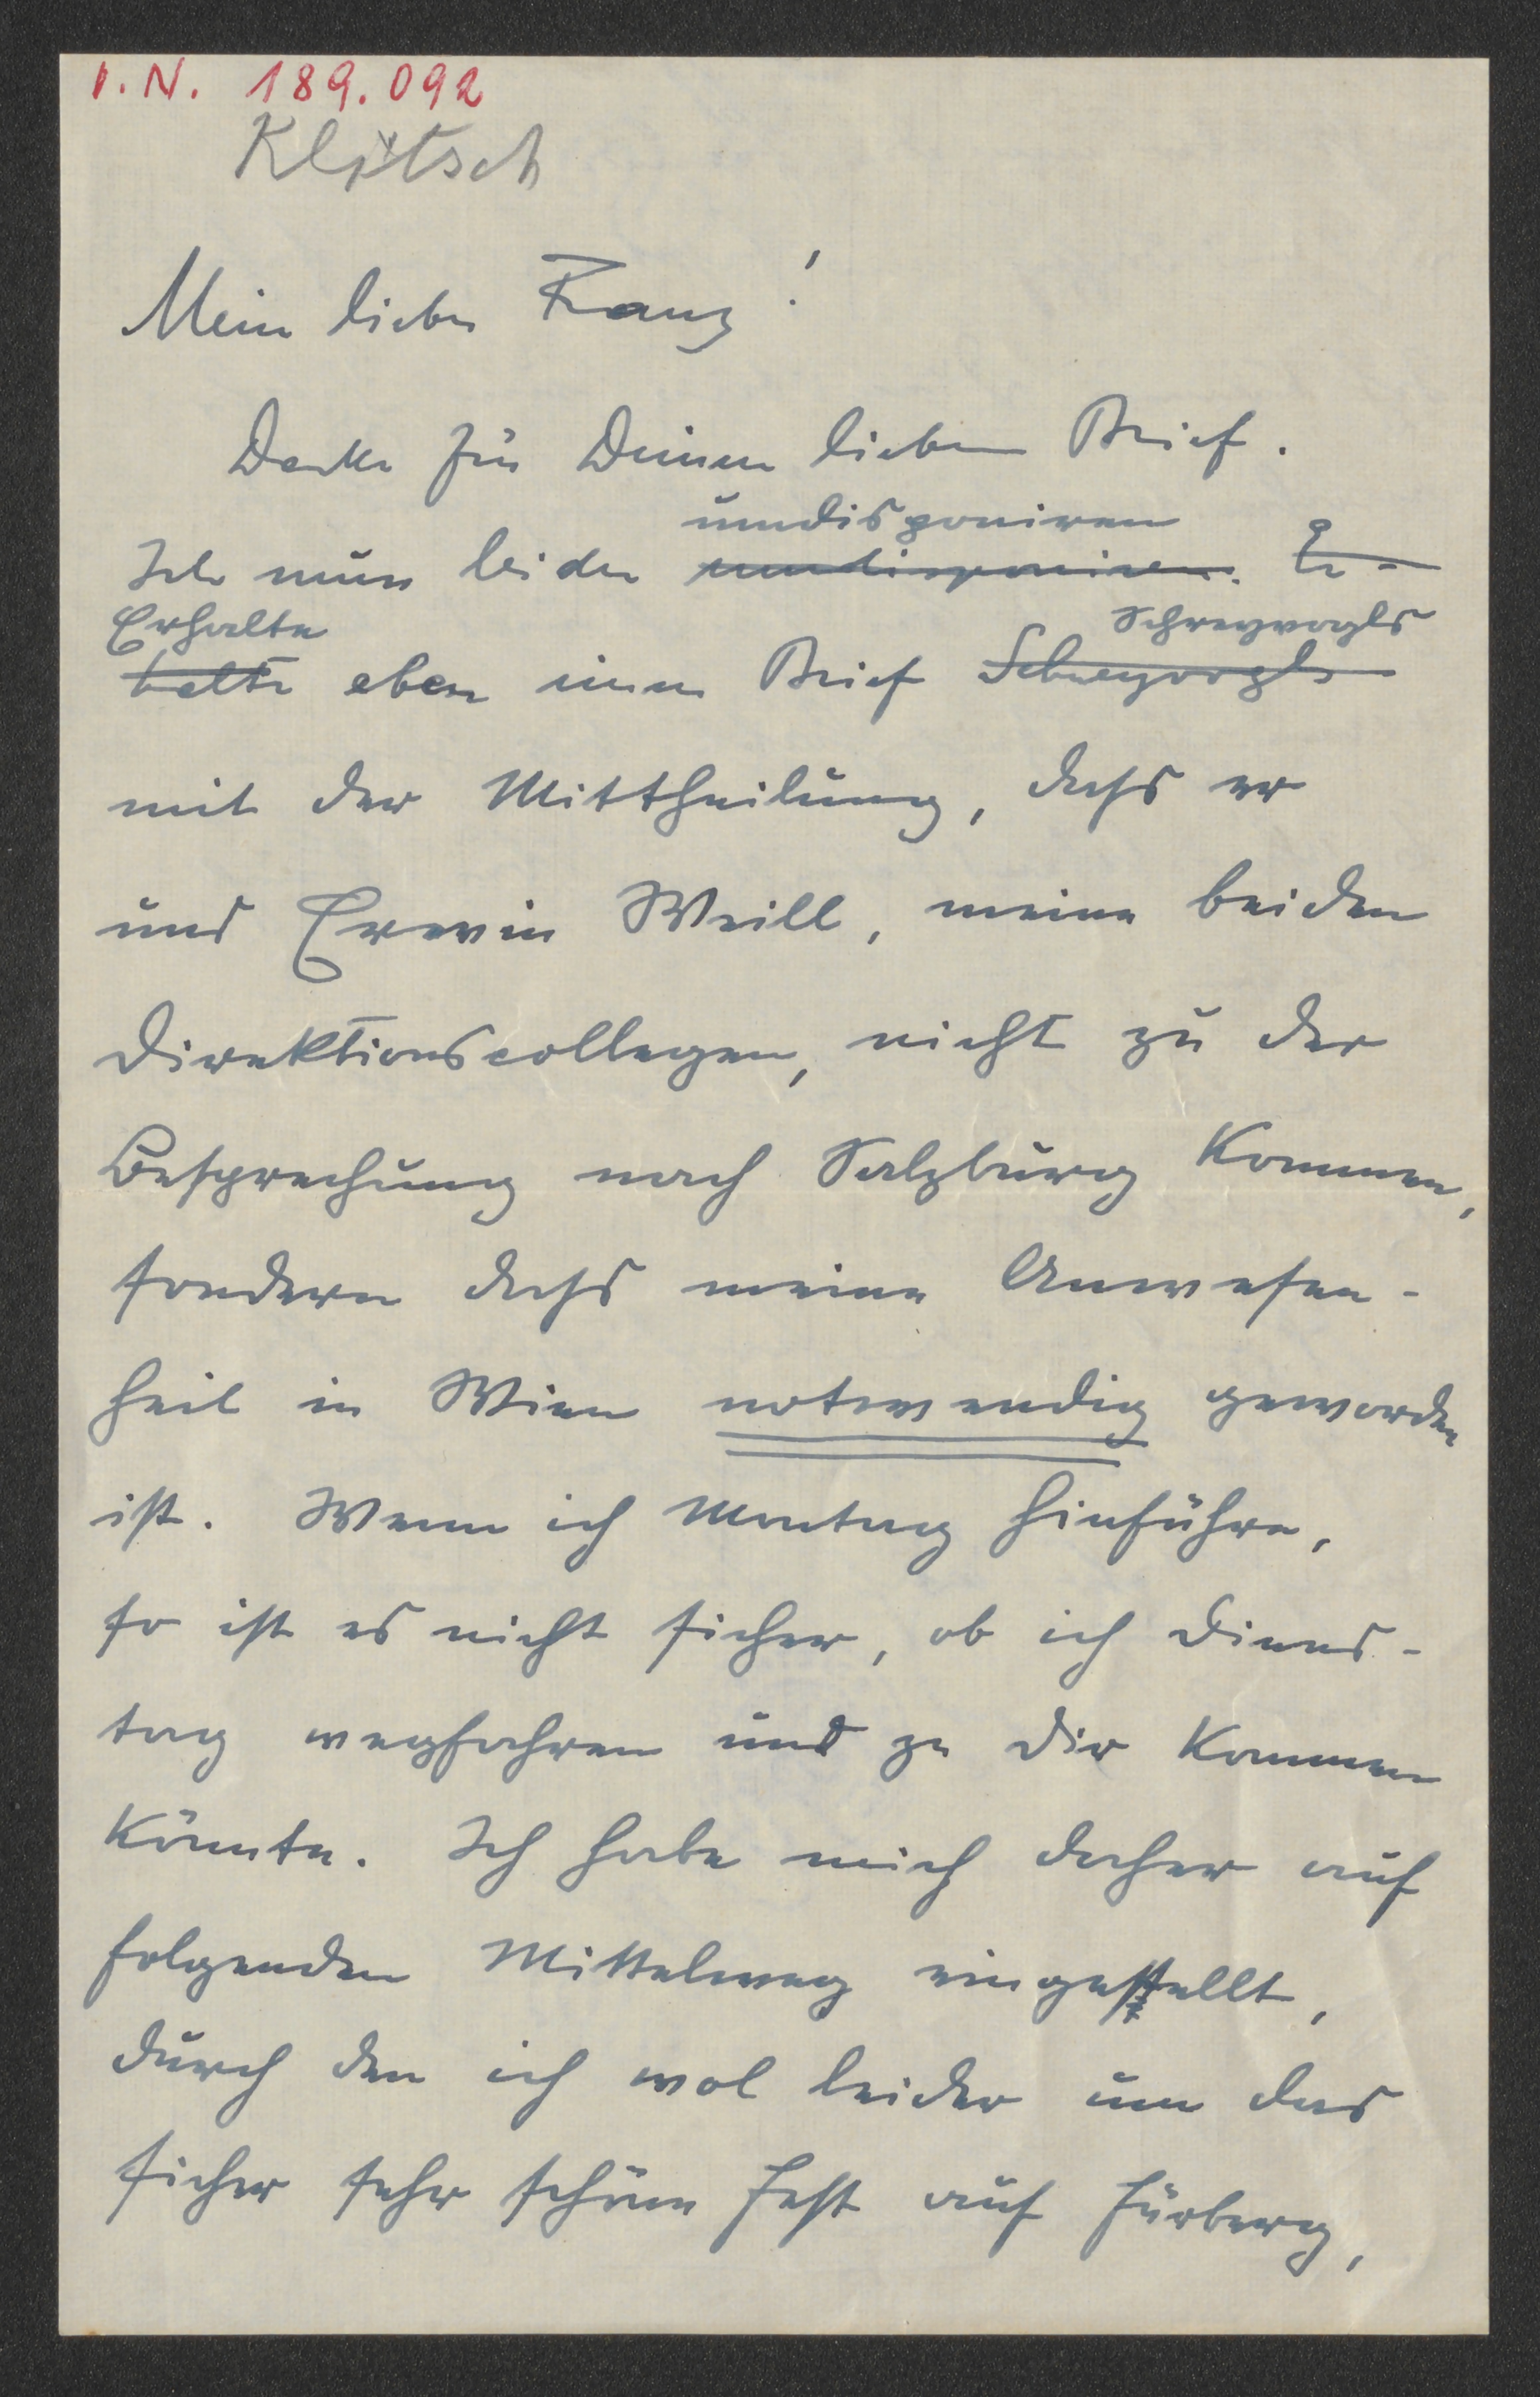 I.N. 189.092
Klötsch
Mein lieber Franz!
Danke für Deinen lieben Brief.
umdisponiren
Ich muss leider umdisponiren. Er-
Erhalte Schreyvogls
halte eben einen Brief Schreyvogls
mit der Mittheilung, dass er
und Erwin Weill, meine beiden
Direktionscollegen, nicht zu der
Besprechung nach Salzburg kommen,
sondern dass meine Anwesen-
heit in Wien notwendig geworden
ist. Wenn ich Montag hinführe,
so ist es nicht sicher, ob ich Diens-
tag wegfahren und zu Dir kommen
könnte. Ich habe mich daher auf
folgenden Mittelweg eingestellt,
durch den ich wol leider um das
sicher sehr schöne Fest auf Fürberg,